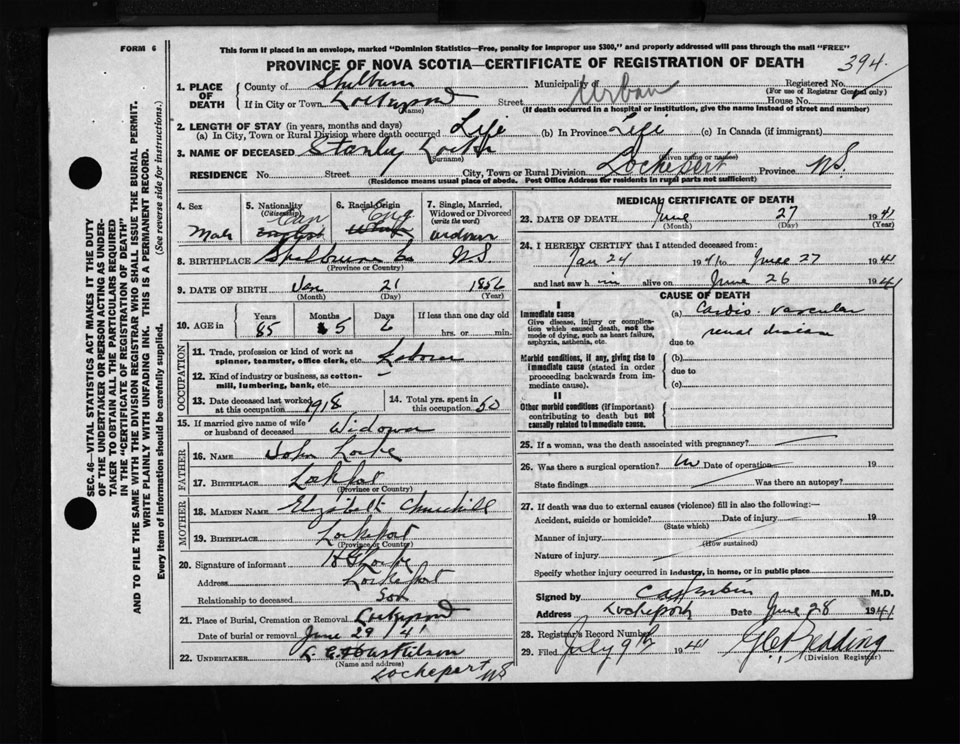 FORM 6
This form if placed in an envelope, marked "Dominion Statistics—Free, penalty for improper use $300," and properly addressed will pass through the mail "FREE"
PROVINCE OF NOVA SCOTIA—CERTIFICATE OF REGISTRATION OF DEATH
394.
1. PLACE OF DEATH
County of Municipality of Urban Registered No.
(For use of Registrar General only)
If in City or Town Street House No.
(Name) (If death occurred in a hospital or institution, give the name instead of street and number)
2. LENGTH OF STAY (in years, months and days)
(a) In City, Town or Rural Division where death occurred Life (b) In Province Life (c) In Canada (if immigrant)
3. NAME OF DECEASED Stanley Locke
(Surname) (Given name or names)
RESIDENCE No. Street City, Town or Rural Division Lockeport Province N.S.
(Residence means usual place of abode. Post Office Address for residents in rural parts not sufficient)
4. Sex Male
5. Nationality (Citizenship) Can
6. Racial Origin Eng
7. Single, Married, Widowed or Divorced (write the word) widower
8. BIRTHPLACE Shelburne Co N.S.
(Province or Country)
9. DATE OF BIRTH Jan 21 1856
(Month) (Day) (Year)
10. AGE in Years Months Days If less than one day old
85 5 6 hrs. or min.
OCCUPATION
11. Trade, profession or kind of work as spinner, teamster, office clerk, etc. Laborer
12. Kind of industry or business, as cotton-mill, lumbering, bank, etc.
13. Date deceased last worked at this occupation 1918
14. Total yrs. spent in this occupation 50
15. If married give name of wife or husband of deceased Widower
FATHER
16. NAME John Locke
17. BIRTHPLACE Lockeport
(Province or Country)
MOTHER
18. MAIDEN NAME Elizabeth Churchill
19. BIRTHPLACE Lockeport
(Province or Country)
20. Signature of informant Locke
Address Lockeport
Relationship to deceased Son
21. Place of Burial, Cremation or Removal Lockeport
Date of burial or removal June 29 /41
22. UNDERTAKER
(Name and address)
Lockeport NS
MEDICAL CERTIFICATE OF DEATH
23. DATE OF DEATH June 27 1941
(Month) (Day) (Year)
24. I HEREBY CERTIFY that I attended deceased from:
Jan 24 1941 to June 27 1941
and last saw him alive on June 26 1941
CAUSE OF DEATH
I
Immediate cause
Give disease, injury or complication which caused death, not the mode of dying, such as heart failure, asphyxia, asthenia, etc.
(a) Cardio. vascular
renal disease
due to
Morbid conditions, if any, giving rise to immediate cause (stated in order proceeding backwards from immediate cause).
(b)
due to
(c)
II
Other morbid conditions (if important) contributing to death but not causally related to immediate cause.
25. If a woman, was the death associated with pregnancy?
26. Was there a surgical operation? no Date of operation 19
State findings Was there an autopsy?
27. If death was due to external causes (violence) fill in also the following:—
Accident, suicide or homicide? Date of injury 19
(State which)
Manner of injury
(How sustained)
Nature of injury
Specify whether injury occurred in industry, in home, or in public place
Signed by M.D.
Address Lockeport Date June 28 1941
28. Registrar's Record Number
29. Filed July 9th 1941
(Division Registrar)
SEC. 46—VITAL STATISTICS ACT MAKES IT THE DUTY
OF THE UNDERTAKER OR PERSON ACTING AS UNDER-
TAKER TO OBTAIN ALL THE PARTICULARS REQUIRED
IN THE "CERTIFICATE OF REGISTRATION OF DEATH"
AND TO FILE THE SAME WITH THE DIVISION REGISTRAR WHO SHALL ISSUE THE BURIAL PERMIT.
WRITE PLAINLY WITH UNFADING INK. THIS IS A PERMANENT RECORD.
Every item of information should be carefully supplied. (See reverse side for instructions.)